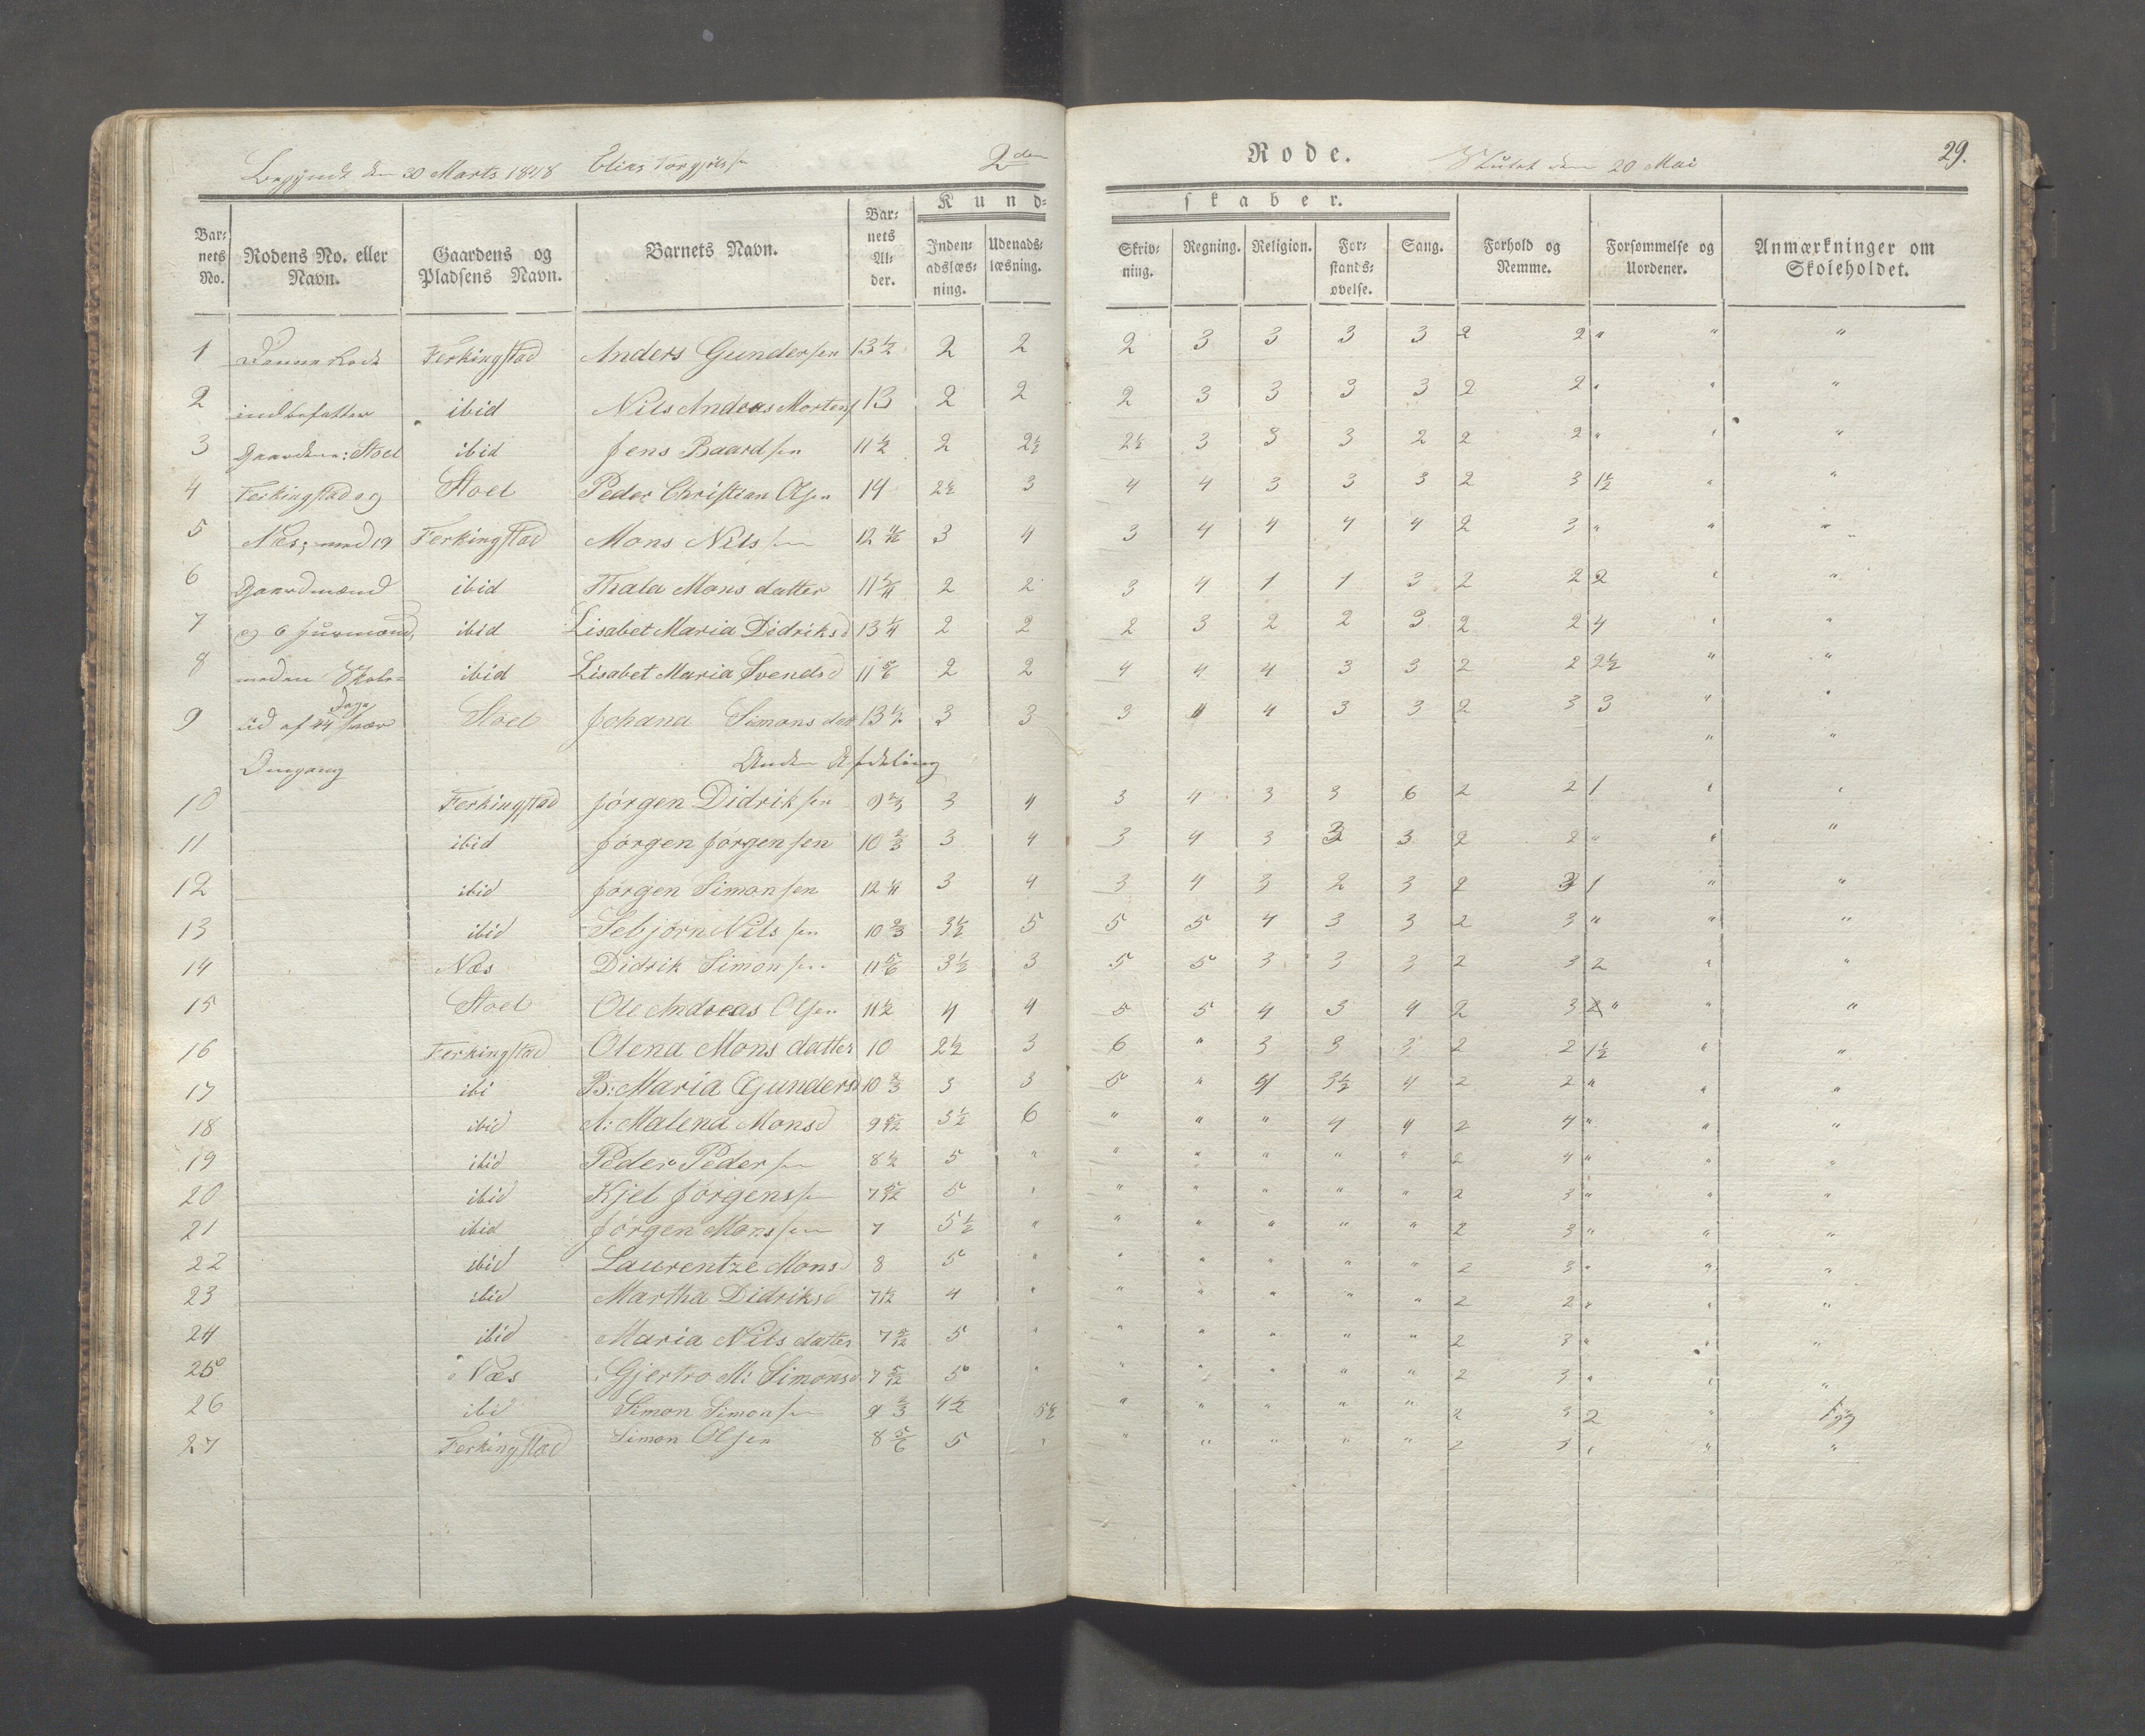 Begyndt den 30 Marts 1848 Elias Torgjels sn 2den Rode. Sluttet den 20 Mai 29.
Kundskaber.
Barnets No. Rodens No. eller Navn. Gaardens og Pladsens Navn. Barnets Navn. Barnets Alder. Indenadslæsning. Udenadslæsning. Skrivning. Regning. Religion. Forstandsøvelse. Sang. Forhold og Nemme. Forsømmelse og Uordener. Anmærkninger om Skoleholdet.
1 Denne Rode Ferkingstad Anders Gundersen 13 1/2 2 2 2 3 3 3 3 2 2 " " "
2 indbefatter ibid Nils Andeas Mortens 13 2 2 2 3 3 3 3 2 2 " " "
3 Gaardene: Stoel ibid Jens Baardsen 11 1/2 2 2 1/2 2 1/2 3 3 3 2 2 2 " " "
4 Ferkingstad og Stoel Peder Christian Olsen 14 2 1/2 3 4 4 3 3 3 2 3 1 1/2 " "
5 Næs; med 19 Ferkingstad Mons Nilssen 12 3 4 3 4 4 4 4 2 3 " " "
6 Gaardmænd ibid Thala Mons datter 11 1/4 2 2 3 4 1 1 3 2 2 2 " "
7 og 6 Huusmænd, ibid Lisabet Maria Didriksd 13 1/4 2 2 2 3 2 2 3 2 2 4 " "
8 med en Skole= ibid Lisabet Maria Svendsd 11 5/6 2 2 4 4 4 3 3 2 2 2 1/2 " "
9 tid af 44 Dage hver Stoel Johana Simons dat 13 1/2 3 3 3 4 4 3 3 2 3 3 " "
Omgang Anden Afdeling " "
10 Ferkingstad Jørgen Didriksen 9 2/3 3 4 3 4 3 3 6 2 2 1 " "
11 ibid Jørgen Jørgensen 10 2/3 3 4 3 4 3 3 3 2 2 " " "
12 ibid Jørgen Simonsen 12 1/4 3 4 3 4 3 2 3 2 3 1 " "
13 ibid Sebjørn Nilssen 10 2/3 3 1/2 5 5 5 4 3 3 2 3 " " "
14 Næs Didrik Simonsen 11 5/6 3 1/2 3 5 5 3 3 3 2 3 2 " "
15 Stoel Ole Andreas Olsen 11 1/2 4 4 5 5 4 3 4 2 3 " " "
16 Ferkingstad Olena Mons datter 10 2 1/2 3 6 " 3 3 3 2 2 1 1/2 " "
17 ibi B: Maria Gundersd 10 2/3 3 3 5 " 4 3 1/2 4 2 2 " " "
18 ibid A: Malena Monsd 9 5/12 3 1/2 6 " " " 4 4 2 4 " " "
19 ibid Peder Pedersen 8 1/2 5 " " " " " " 2 4 " " "
20 ibid Kjel Jørgenssn 7 5/12 5 " " " " " " 2 3 " " "
21 ibid Jørgen Monssen 7 5 1/2 " " " " " " 2 3 " " "
22 ibid Laurentze Monsd 8 5 " " " " " " 2 3 " " "
23 ibid Martha Didriksd 7 1/2 4 " " " " " " 2 2 " " "
24 ibid Maria Nils datter 7 5 " " " " " " 2 3 " " "
25 Næs Gjertro M: Simonsd 7 5/12 5 " " " " " " 2 3 " " "
26 ibi Simon Simonsen 9 2/3 4 1/2 5 1/2 " " " " " 2 3 2 "
27 Ferkingstad Simon Olsen 8 5/6 5 " " " " " " 2 3 " " "